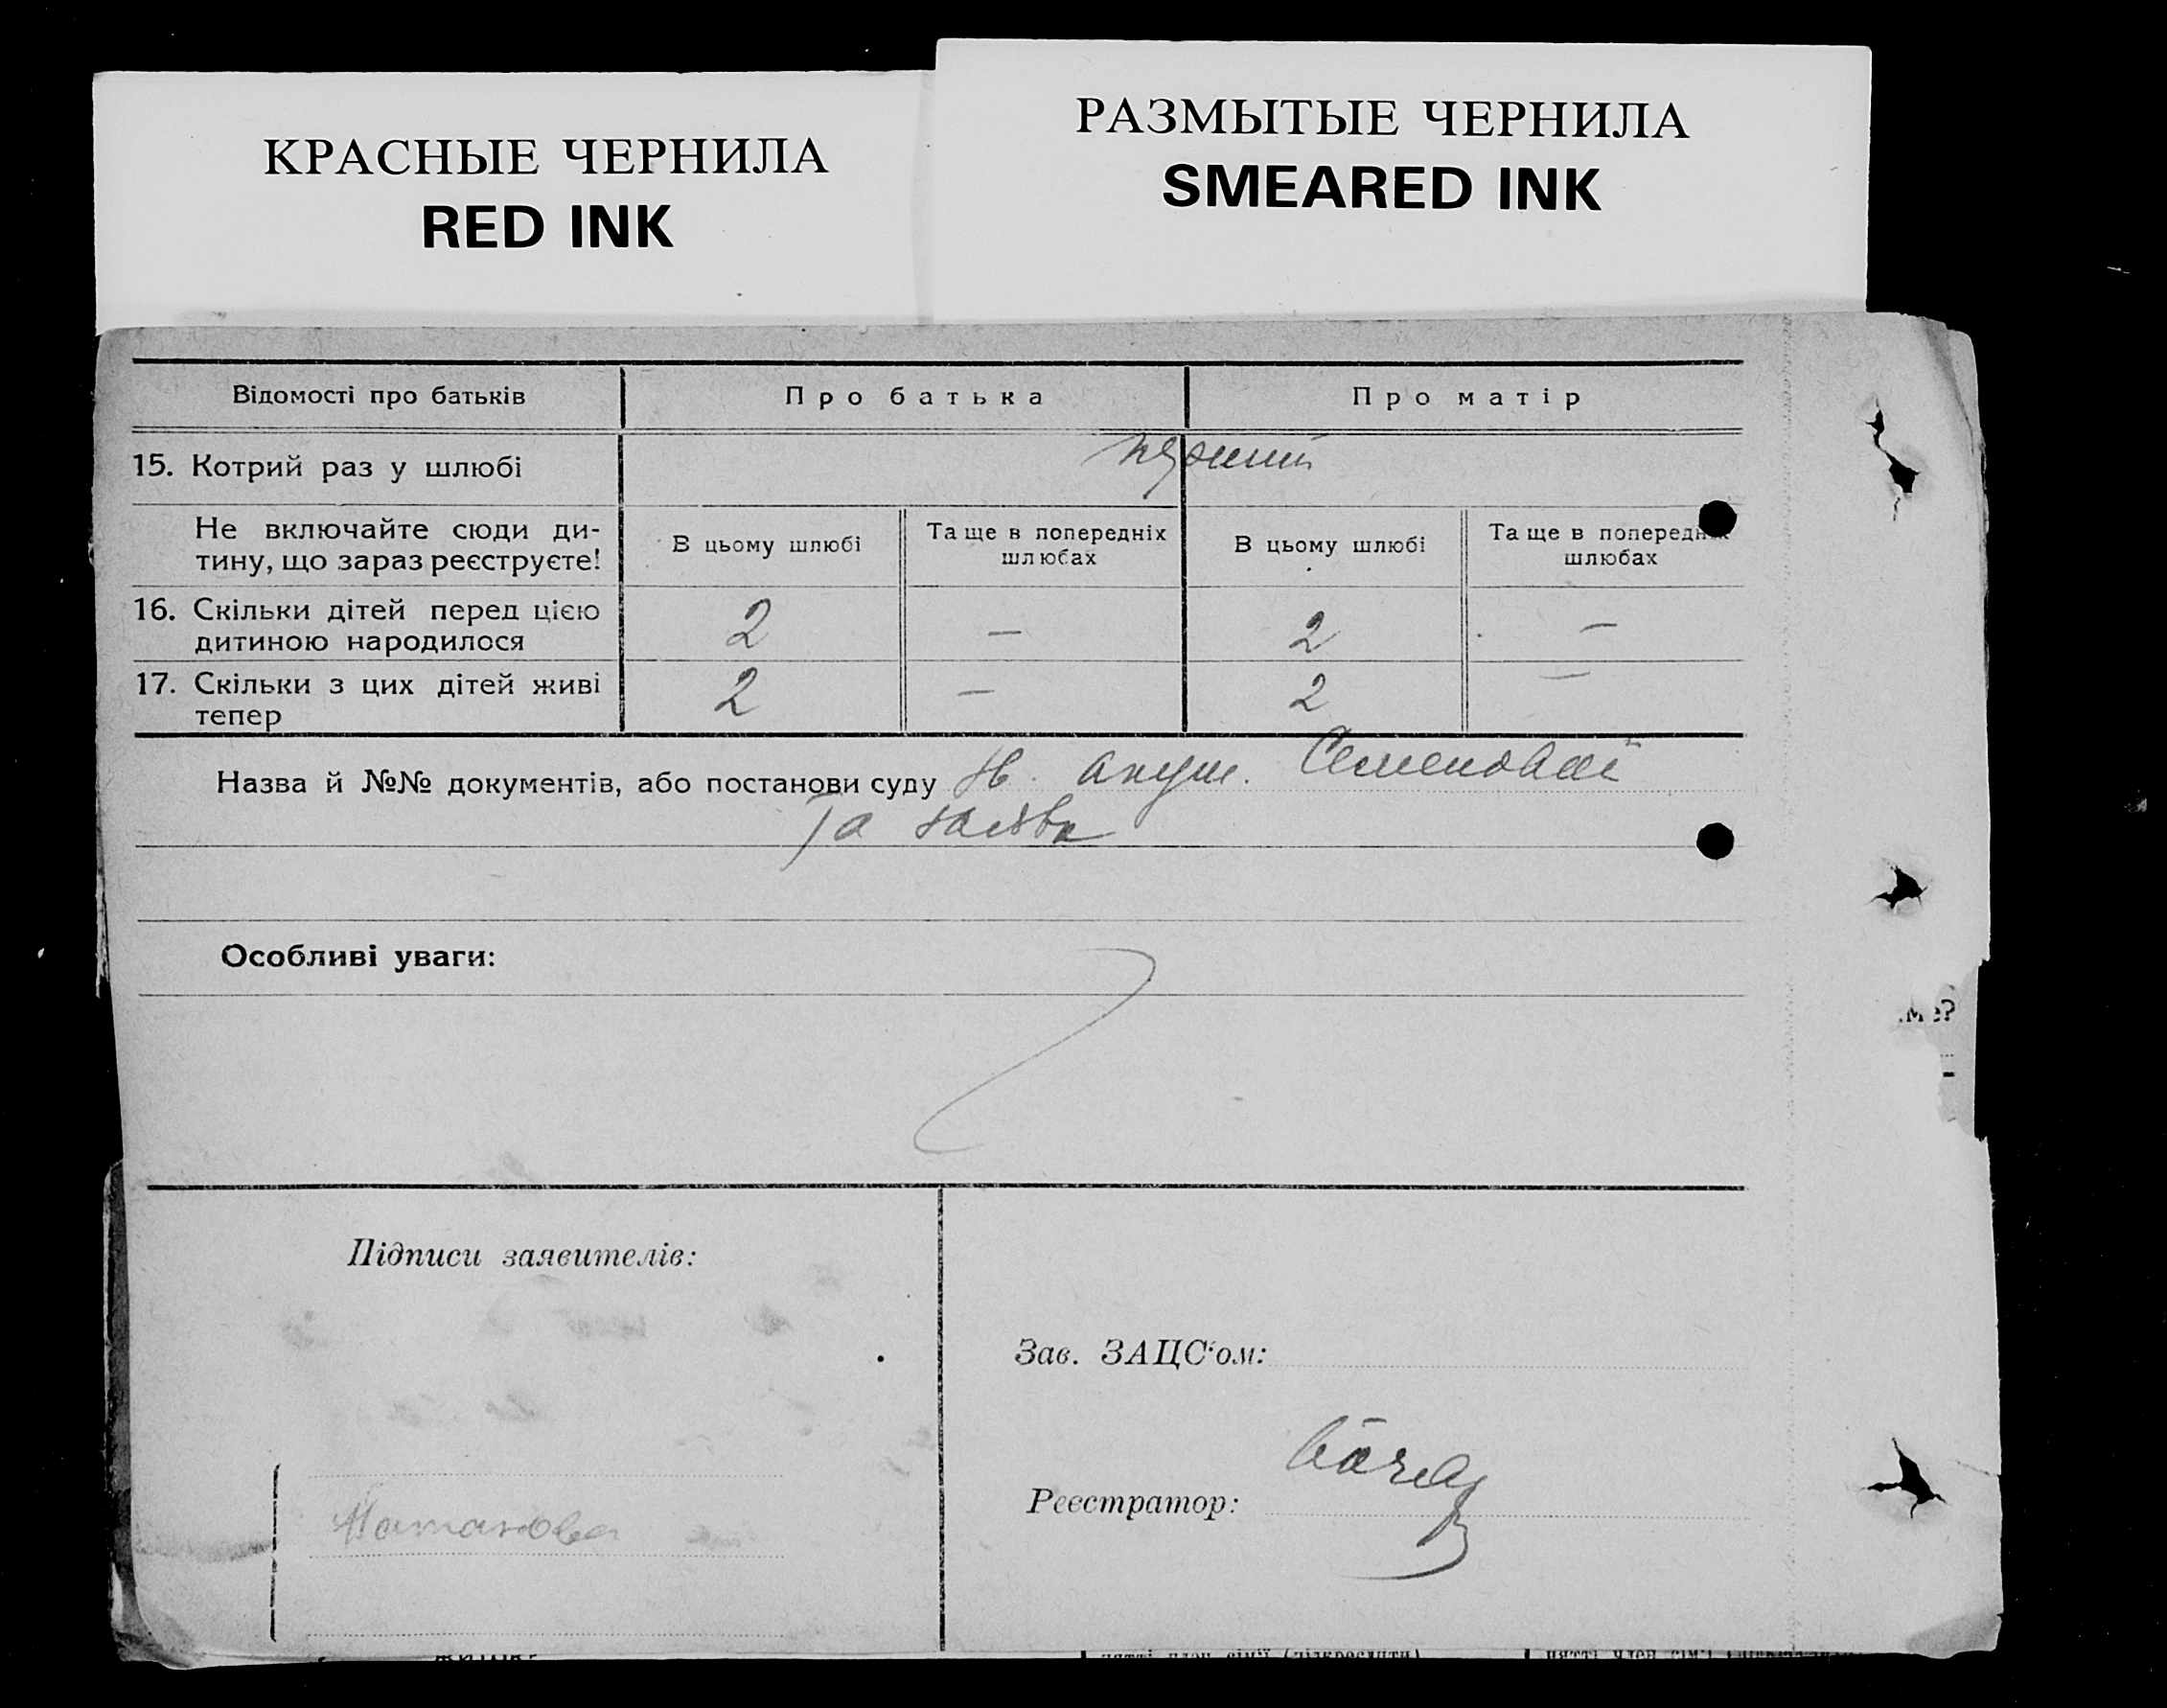 КРАСНЫЕ ЧЕРНИЛА
RED INK
РАЗМЫТЫЕ ЧЕРНИЛА
SMEARED INK
Відомості про батьків Про батька Про матір
15. Котрий раз у шлюбі перший
Не включайте сюди ди-
тину, що зараз реєструєте!
В цьому шлюбі
Та ще в попередніх
шлюбах
В цьому шлюбі
Та ще в попередніх
шлюбах
16. Скільки дітей перед цією
дитиною народилося
2 — 2 —
17. Скільки з цих дітей живі
тепер
2 — 2 —
Назва й №№ документів, або постанови суду акуш.
та заява
Особливі уваги:
Підписи заявителів:
Зав. ЗАЦС'ом:
Реєстратор: